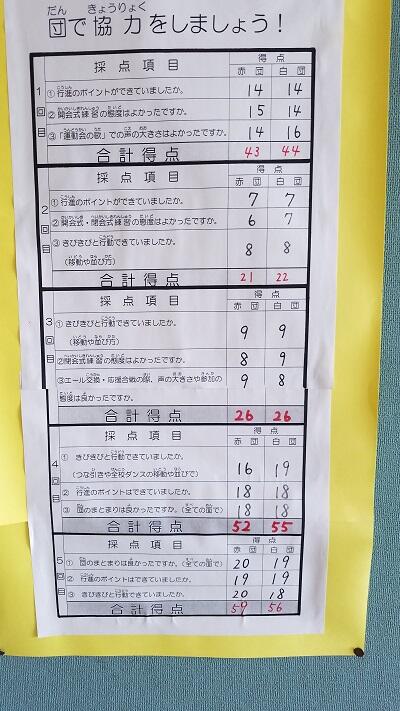 団で協力をしましょう！
採点項目 得点
赤団 白団
1回目
①行進のポイントができていましたか。 14 14
②開会式練習の態度はよかったですか。 15 14
③「運動会の歌」での声の大きさはよかったですか。 14 16
合計得点 43 44
採点項目 得点
赤団 白団
2回目
①行進のポイントができていましたか。 7 7
②開会式・閉会式練習の態度はよかったですか。 6 7
③きびきびと行動できていましたか。 8 8
（移動や並び方）
合計得点 21 22
採点項目 得点
赤団 白団
3回目
①きびきびと行動できていましたか。 9 9
（移動や並び方）
②閉会式練習の態度はよかったですか。 8 9
③エール交換・応援合戦の際、声の大きさや参加の 9 8
態度は良かったですか。
合計得点 26 26
採点項目 得点
赤団 白団
4回目
① きびきびと行動できていましたか。 16 19
（つな引きや全校ダンスの移動や並びで）
② 行進のポイントはできていましたか。 18 18
③ 団のまとまりは良かったですか。（全ての面で） 18 18
合計得点 52 55
採点項目 得点
赤団 白団
5回目
① 団のまとまりは良かったですか。（全ての面で） 20 19
② 行進のポイントはできていましたか。 19 19
③ きびきびと行動できていましたか。 20 18
合計得点 59 56